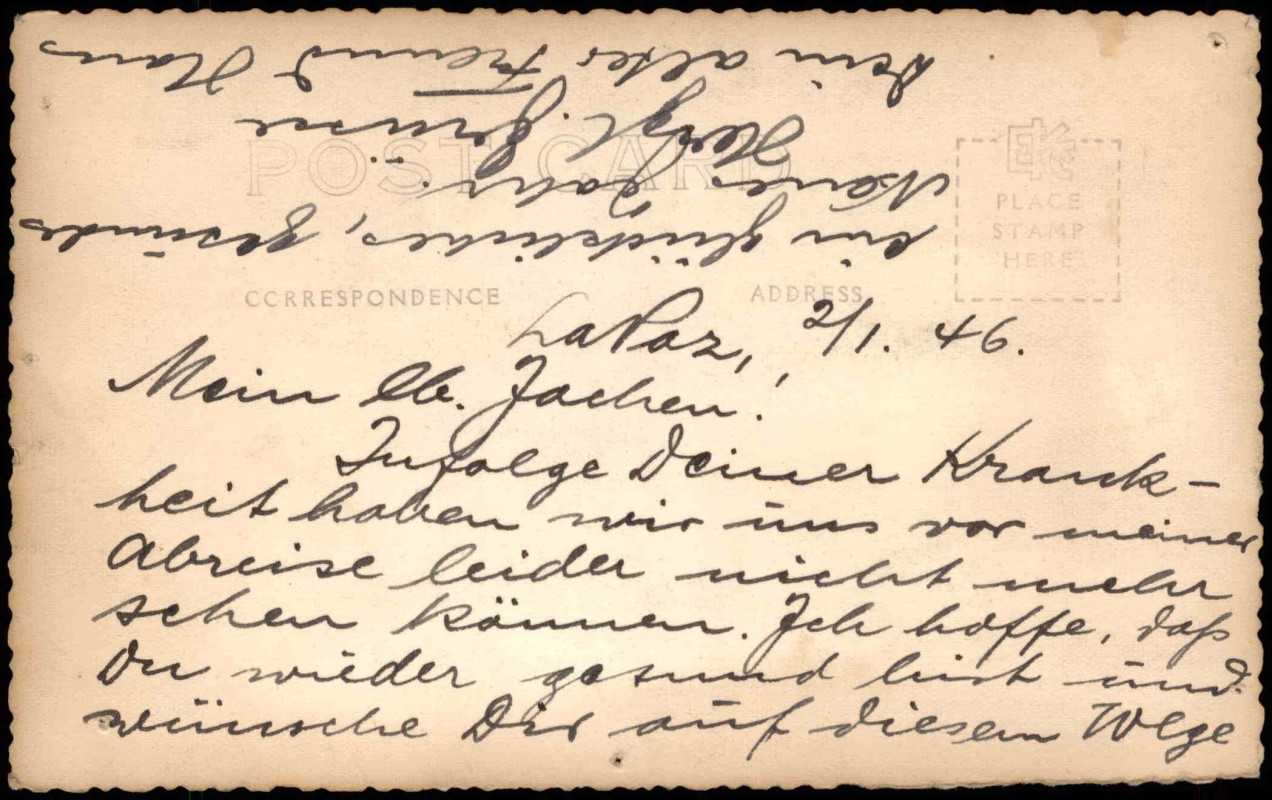 POST CARD
EKC
PLACE
STAMP
HERE
CORRESPONDENCE
ADDRESS
La Paz, 2/1. 46.
Mein lb. Jochen!
Infolge Deiner Krank-
heit haben wir uns vor meiner
Abreise leider nicht mehr
sehen können. Ich hoffe, daß
Du wieder gesund bist und
wünsche Dir auf diesem Wege
ein glückliches, gesundes
Neues Jahr.
Herzl. Grüsse
Dein alter Freund Hans